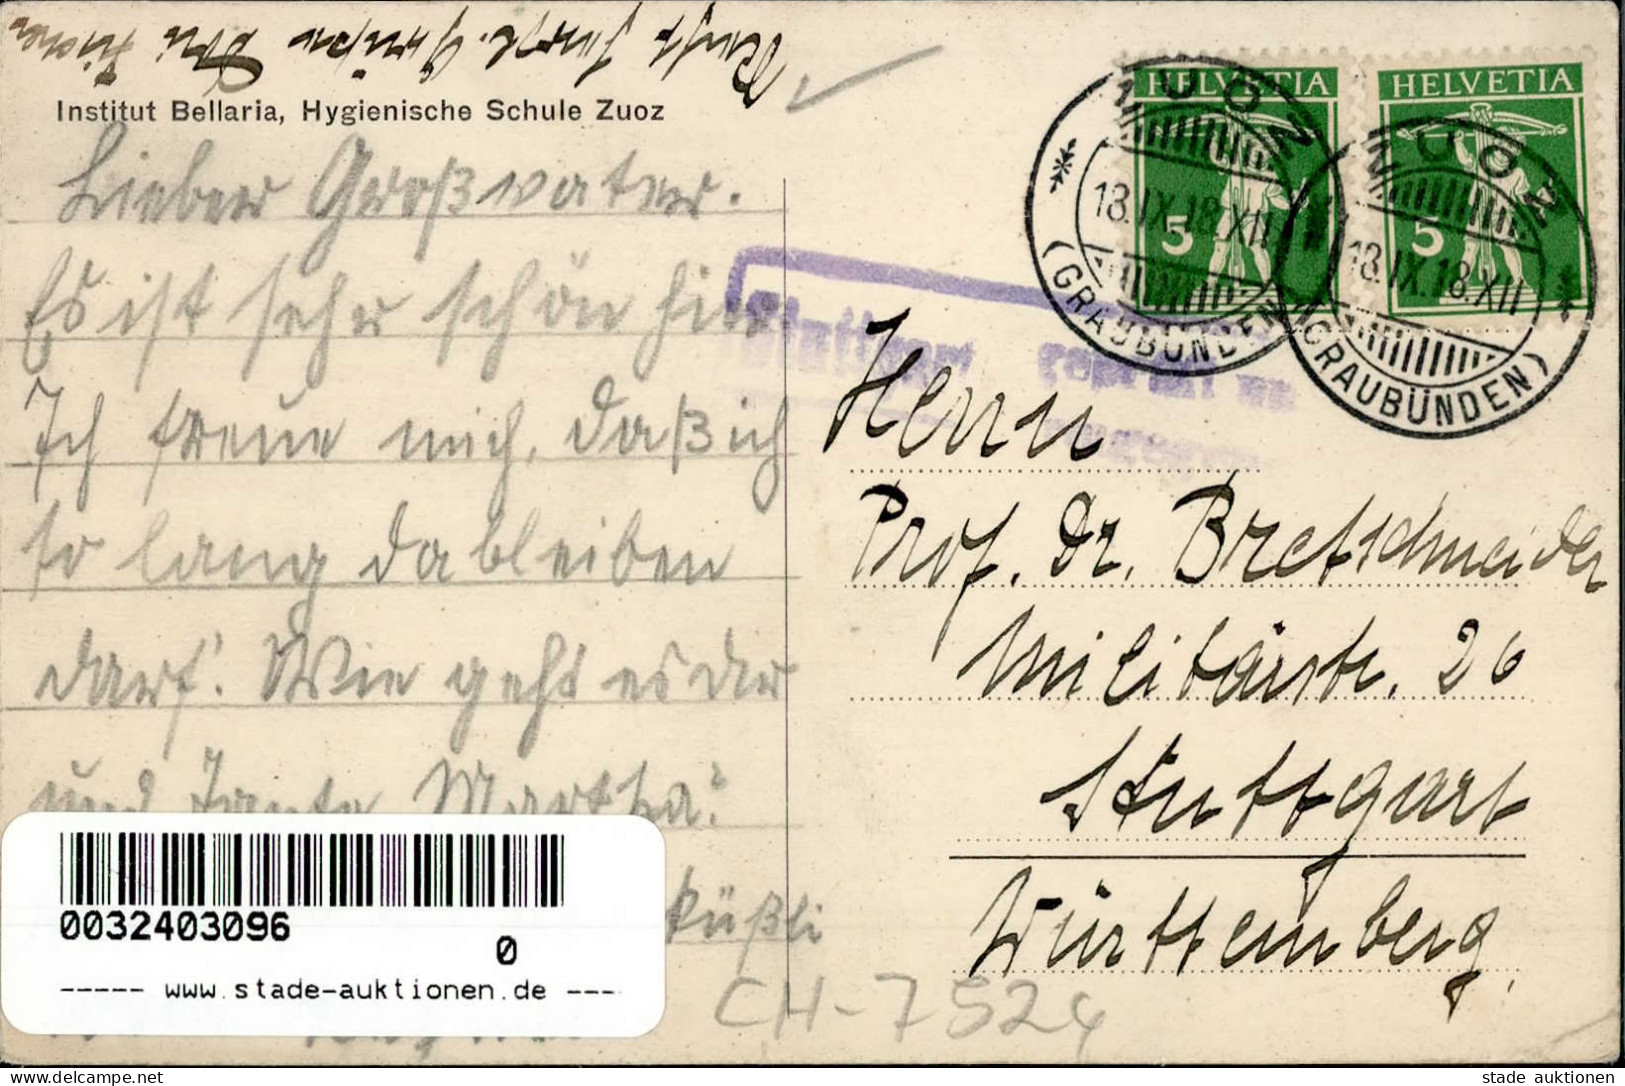 Institut Bellaria, Hygienische Schule Zuoz
Lieber Großvater.
Es ist sehr schön hier
Ich freue mich, daß ich
so lang da bleiben
darf! Wie geht es dir
und Tante Martha?
küßli
HELVETIA
5
HELVETIA
5
ZUOZ
18.IX.18.XII
(GRAUBÜNDEN)
ZUOZ
18.IX.18.XII
(GRAUBÜNDEN)
Herrn
Prof. Dr. Bretschneider
Militärstr. 26
Stuttgart
Württemberg.
CH-7524
0032403096
0
----- www.stade-auktionen.de ----
www.delcampe.net
stade auktionen